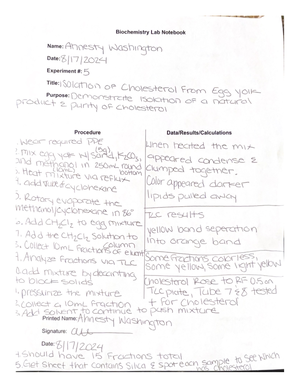 Biochemistry Lab Notebook
Name: Amnesty Washington
Date: 8/17/2024
Experiment #: 5
Title: Isolation of Cholesterol from Egg yolk
Purpose: Demonstrate isolation of a natural
product & purity of cholesterol
Procedure
Wear required PPE
1. Mix egg yolk w/ sand (5g), K2CO3,
and methanol in 250mL round
bottom
1. Heat mixture via reflux
. add cyclohexane
2. Rotary evaporate the
methanol/cyclohexane in
. Add CH2Cl2 to egg mixture
. Add the CH2Cl2 Solution to
column
. Collect 10mL fractions of
. Analyze Fractions via TLC
. add mixture by decanting
to block solids
. pressurize the mixture
. collect a 10mL fraction
. Add solvent to continue to push mixture
Data/Results/Calculations
When heated the mix
appeared condense &
clumped together.
Color appeared darker
lipids pulled away
TLC results
yellow band seperation
into orange band
Some fractions colorless,
Some yellow, Some light yellow
Cholesterol Rose to RF 0.5 on
TLC plate, Tube 7 & 8 tested
+ for Cholesterol
Printed Name: Amnesty Washington
Signature:
Date: 8/17/2024
4. Should have 15 fractions total
5. Get Sheet that contains Silica & Spot each sample to see which
has cholesterol